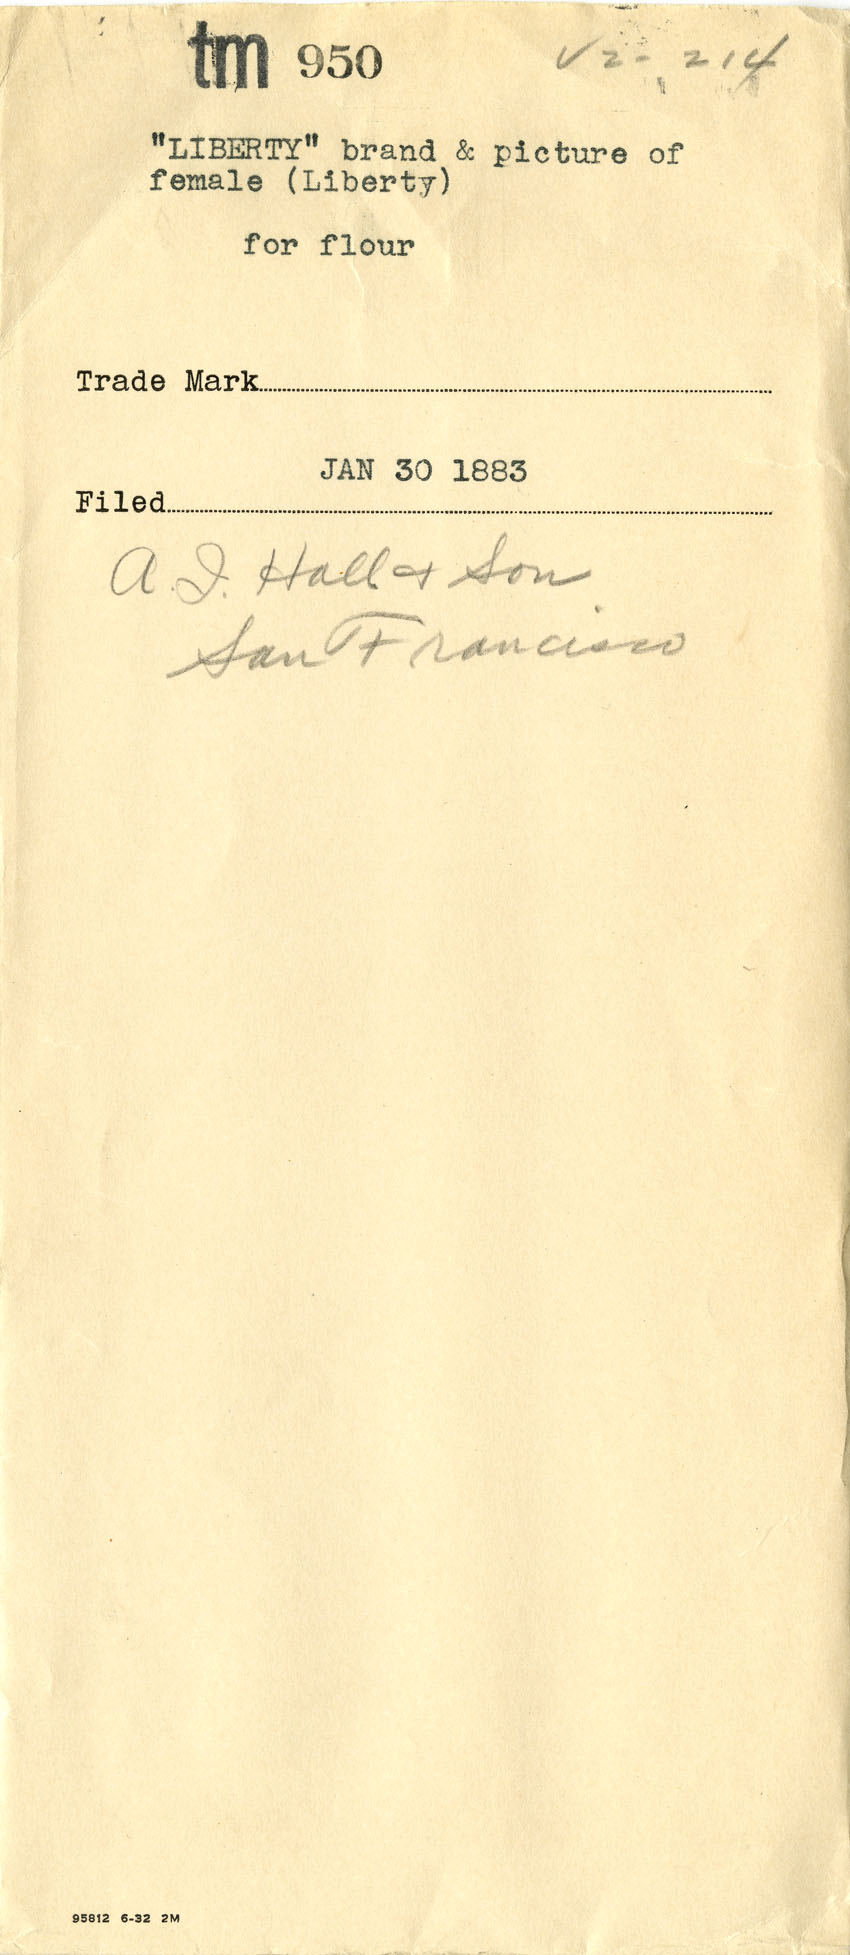 tm 950 V2-214
"LIBERTY" brand & picture of
female (Liberty)
for flour
Trade Mark
JAN 30 1883
Filed
A. J. Hall & Son
San Francisco
95812 6-32 2M